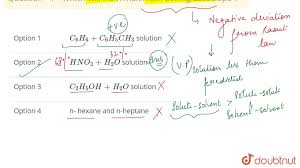 Option 1
C6H6 + C6H5CH3 solution X
+ve
Option 2
68% HNO3 + 32% H2O solution
Ans
Option 3
C2H5OH + H2O solution X
Option 4
n- hexane and n-heptane X
Negative deviation
from Raoult
law
(V.P) solution less then
predicted
Solute-solvent > Solute-solute
Solvent-solvent
doubtnut